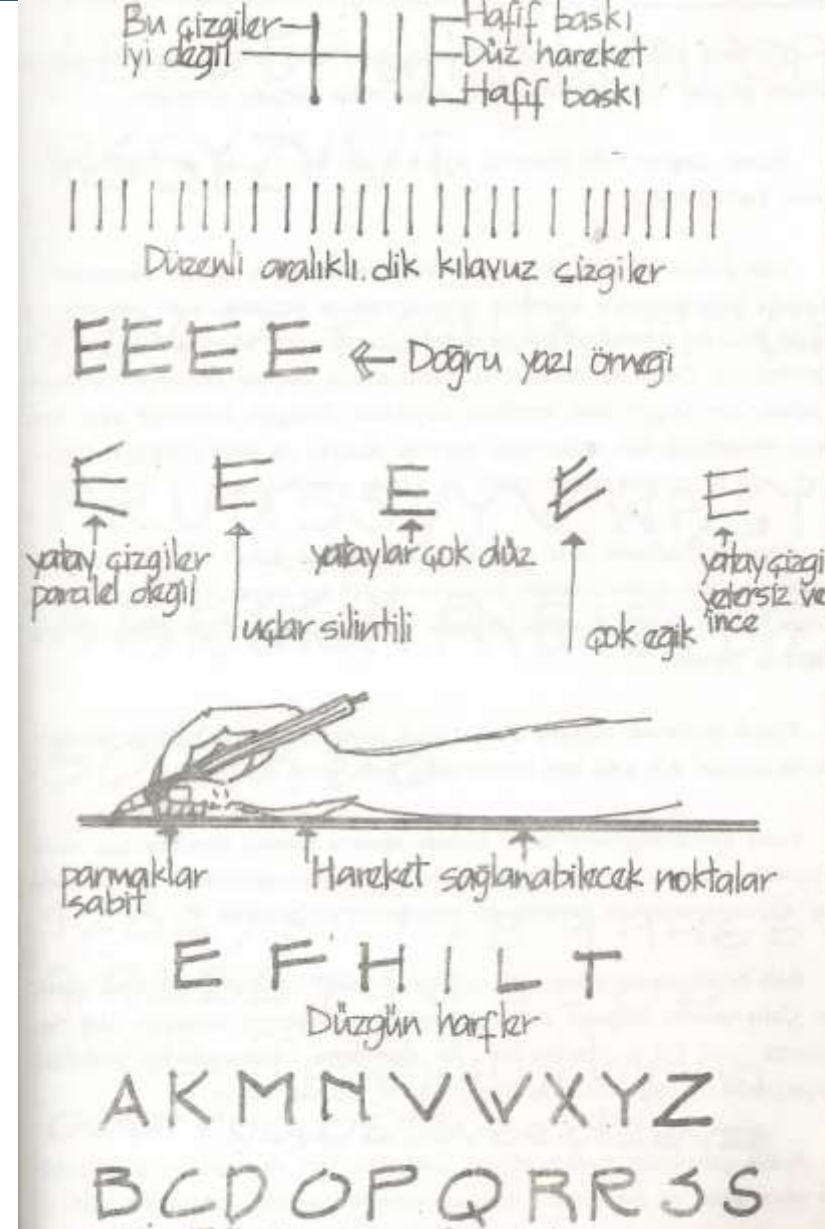 Bu çizgiler
iyi değil
Hafif baskı
Düz hareket
Hafif baskı
Düzenli aralıklı. dik kılavuz çizgiler
E E E E ← Doğru yazı örneği
E E E E E
yatay çizgiler
paralel değil
uçlar silintili
yataylar çok düz
çok eğik
yatay çizgi
yetersiz ve
ince
parmaklar
sabit
Hareket sağlanabilecek noktalar
E F H I L T
Düzgün harfler
A K M N V W X Y Z
B C D O P Q R R J S